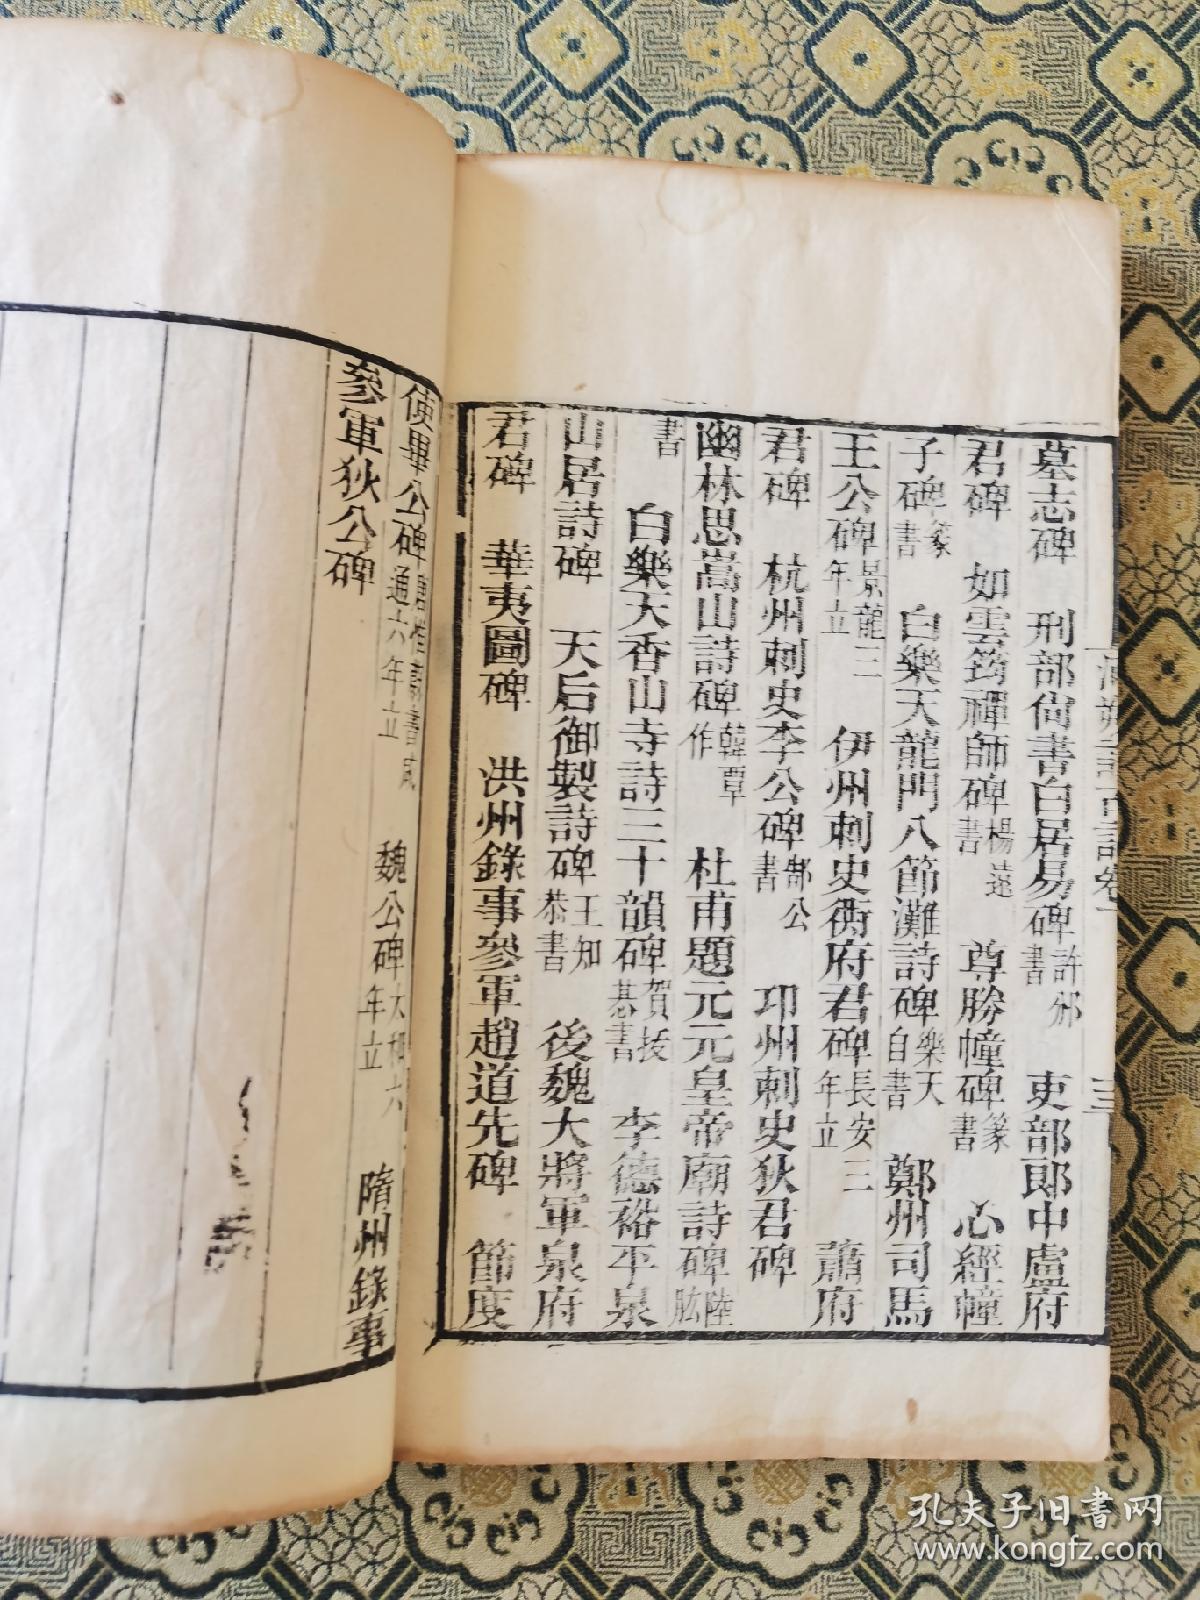 墓志碑　刑部尙書白居易碑許邠書　吏部郞中盧府
君碑　如雲筠禪師碑楊遠書　尊勝幢碑篆書　心經幢
子碑篆書　白樂天龍門八節灘詩碑樂天自書　鄭州司馬
王公碑景龍三年立　伊州刺史衡府君碑長安三年立　蕭府
君碑　杭州刺史李公碑鄒公書　邛州刺史狄君碑
幽林思嵩山詩碑韓覃作　杜甫題元元皇帝廟詩碑陸肱
書　白樂天香山寺詩三十韻碑賀拔惎書　李德裕平泉
山居詩碑　天后御製詩碑王知恭書　後魏大將軍泉府
君碑　華夷圖碑　洪州錄事參軍趙道先碑　節度
使畢公碑唐惟書咸通六年立　魏公碑太和六年立　隋州錄事
參軍狄公碑
三
孔夫子旧书网
www.kongfz.com